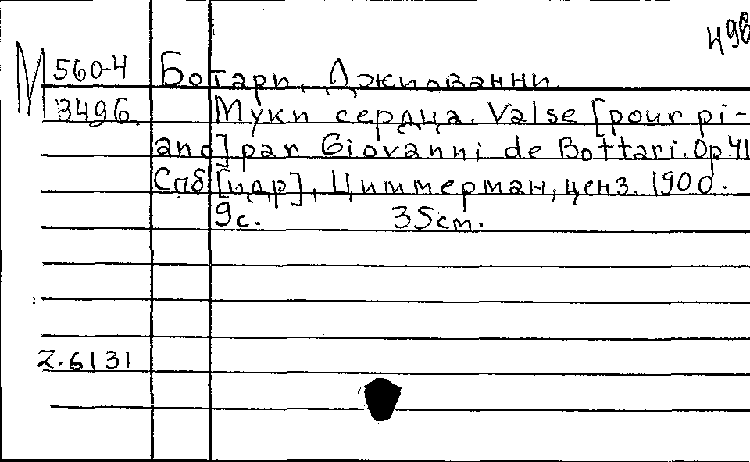 498
M 560-4 Ботари, Джиованни.
3496 Муки сердца. Valse [pour pi-
ano] par Giovanni de Bottari. Op 41
Спб [и др], Циммерман, ценз. 1900.
9с. 35см.
Z.6131